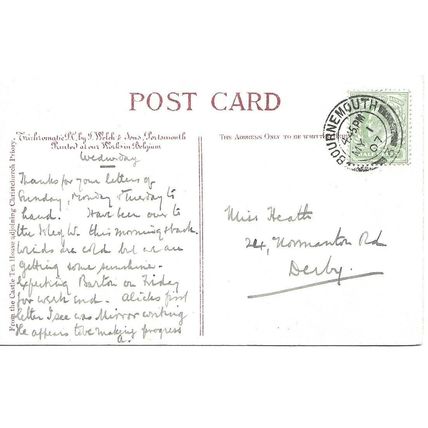 POST CARD
Trichromatic Pt. by J. Welch & Sons, Portsmouth
Printed at our Works in Belgium
THE ADDRESS ONLY TO BE WRITTEN
From the Castle Tea House adjoining Christchurch Priory.
BOURNEMOUTH
4.45 PM
MY 1
07
Wednesday
Thanks for your letters of
Sunday, Monday & Tuesday to
hand. Have been over to
the I of W. this morning & back.
Winds are cold but we are
getting some sunshine.
Expecting Barton on Friday
for week end. post
letter I see was Mirror writing
He appears to be making progress
a.
Miss Heath
24, Normanton Rd
Derby.